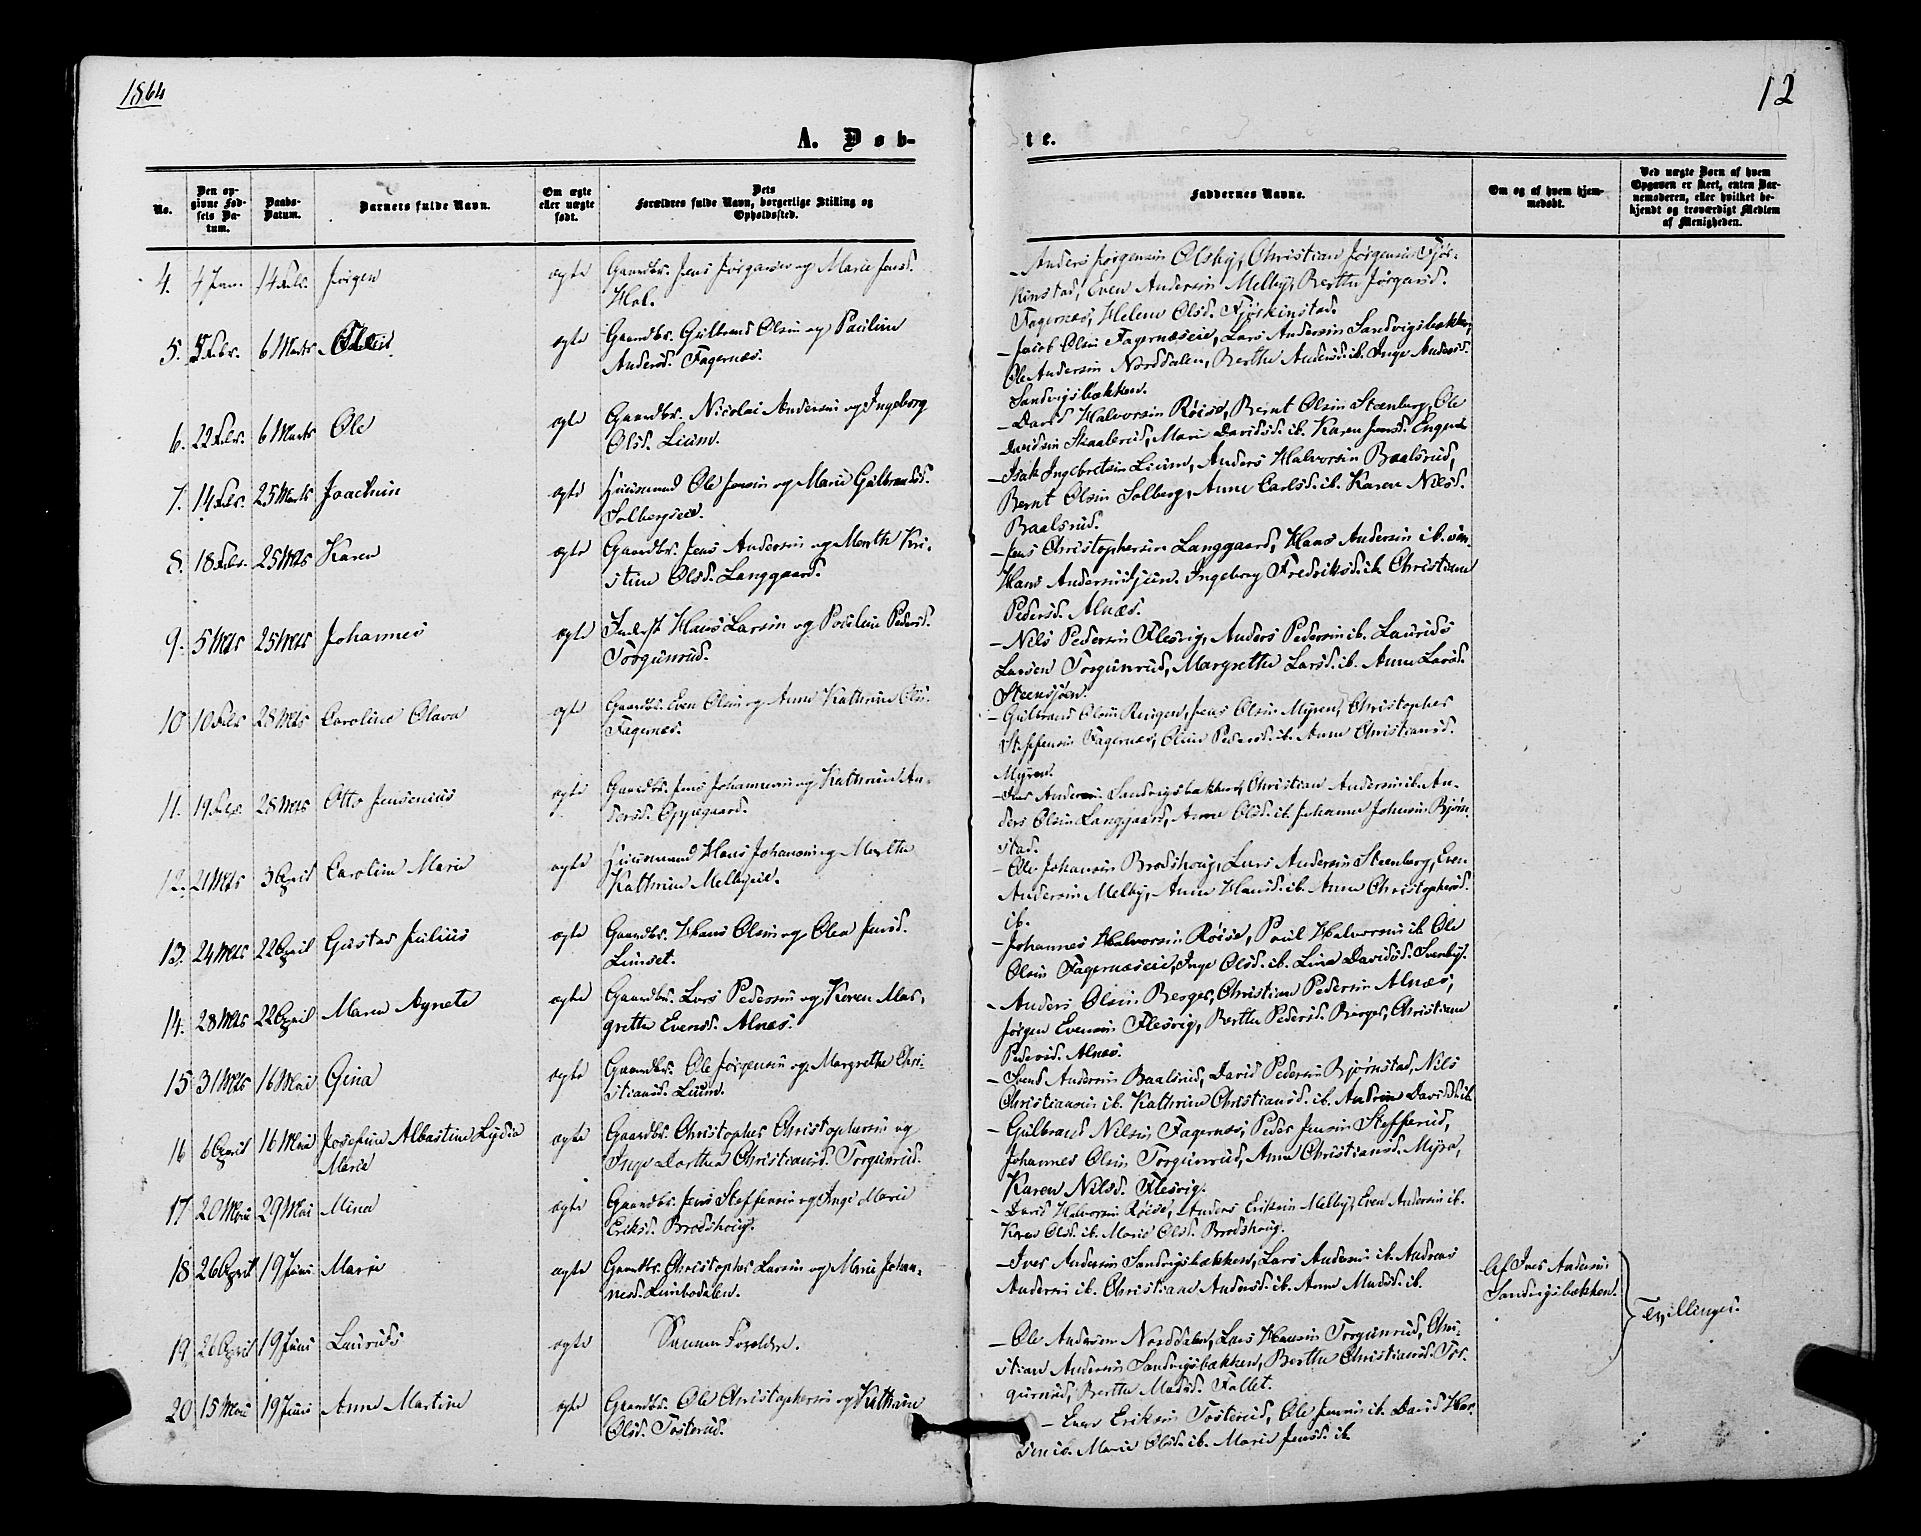 1864
12
A. Døb-
te.
No.
Den op-
givne Fød-
sels Da-
tum.
Daabs-
Datum.
Barnets fulde Navn.
Om ægte
eller uægte
født.
Dets
Forældres fulde Navn, borgerlige Stilling og
Opholdssted.
Faddernes Navne.
Om og af hvem hjem-
medøbt.
Ved uægte Børn af hvem
Opgaven er skeet, enten Bar-
nemoderen, eller hvilket be-
kjendt og troværdigt Medlem
af Menigheden.
4. 4 Jan. 14 Febr. Jørgen ægte Gaardbr. Jens Jørgensen og Marie Jensd.
Hol.
- Anders Jørgensen Olsby, Christian Jørgensen Fjös-
kinstad, Even Andersen Melby, Berthe Jørgensd.
Fagernæs, Helene Olsd. Fjöskinstad.
5. Febr. 6 Marts ægte Gaardbr. Gulbrand Olsen og Pauline
Andersd. Fagernæs.
- Jacob Olsen Fagernæseie, Lars Andersen Sandvigsbækken,
Ole Andersen Norddalen, Berthe Andersd. ib. Inge Andersd.
Sandvigsbækken.
6. 22 Febr. 6 Marts Ole ægte Gaardbr. Nicolai Andersen og Ingeborg
Olsd. Lium.
- David Halvorsen Röise, Bernt Olsen Steenberg, Ole
Davidsen Skaalerud, Marie Davidsd. ib. Karen Jensd.
7. 14 Febr. 25 Marts Joachim ægte Huusmand Ole Jensen og Marie Gulbrandsd.
Solbergseie.
- Isak Ingebretsen Lium, Anders Halvorsen Baalsrud,
Bernt Olsen Solberg, Anne Carlsd. ib. Karen Nilsd.
Baalsrud.
8. 18 Febr. 25 Mts Karen ægte Gaardbr. Jens Andersen og Marthe Kri-
stine Olsd. Langgaard.
- Jens Christophersen Langgaard, Hans Andersen ib.
Hans Andersen Ingeborg Fredriksd. ib. Christiane
Pedersd. Alnæs.
9. 5 Mts 25 Mts Johannes ægte Inderst Hans Larsen og Pauline Pedersd.
Torgunrud.
- Nils Pedersen Flesvig, Anders Pedersen ib. Laurids
Larsen Torgunrud, Margrethe Larsd. ib. Anne Larsd.
Steensjöen.
10 10 Febr 28 Mts Caroline Olava ægte Gaardbr. Even Olsen og Anne Kathrine Olsd.
Fagernæs.
- Gulbrand Olsen Ringen, Jens Olsen Myren, Christopher
Steffensen Fagernæs, Oline Pedersd. ib. Anne Christiansd.
Myren.
11. 19 Febr. 28 Mts Otto Jensenius ægte Gaardbr. Jens Johannesen og Kathrine An-
dersd. Oppegaard.
- Iver Andersen Sandvigsbækken, Christian Andersen ib. An-
ders Olsen Langgaard, Anne Olsd. ib. Johanne Johnsen Bjørn-
stad.
12. 21 Mts 3 April Caroline Marie ægte Huusmand Hans Johansen og Marthe
Kathrine Melbyeie.
- Ole Johansen Brodshoug, Lars Andersen Steenberg, Even
Andersen Melby, Anne Hansd. ib. Anne Christophersd.
ib.
13. 24 Mts 22 April Gustav Julius ægte Gaardbr. Hans Olsen og Olea Jensd.
Linset.
- Johannes Halvorsen Röise, Poul Halvorsen ib. Ole
Olsen Fagernæseie, Inge Olsd. ib. Lina Davidsd. Svenby.
14. 28 Mts 22 April Maren Agnete ægte Gaardbr. Lars Pedersen og Karen Mar-
grethe Evensd. Alnæs.
- Anders Olsen Berger, Christian Pedersen Alnæs,
Jørgen Evensen Flesvig, Berthe Pedersd. Berger, Christiane
Pedersd. Alnæs.
15 31 Mts 16 Mai Gina ægte Gaardbr. Ole Jørgensen og Margrethe Chri-
stiansd. Lium.
- Svend Andersen Baalsrud, David Pedersen Bjørnstad, Nils
Christiansen ib. Kathrine Christiansd. ib. Andrine Davidsd. ib.
16 6 April 16 Mai Josefine Albertine Lydia
Marie
ægte Gaardbr. Christopher Christophersen og
Inge Dorthea Christiansd. Torgunrud.
- Gulbrand Nilsen Fagernæs, Peder Jensen Stefferud,
Johannes Olsen Torgunrud, Anne Christiansd. Myra,
Karen Nilsd. Flesvig.
17 20 Mai 29 Mai Mina ægte Gaardbr. Jens Steffensen og Inge Marie
Eriksd. Brodshoug.
- David Halvorsen Röise, Anders Eriksen Melby, Even Andersen ib.
Karen Olsd. ib. Marie Olsd. Brodshoug.
18 26 April 19 Juni Marie ægte Gaardbr. Christopher Larsen og Marie Johan-
nesd. Limbodalen.
- Iver Andersen Sandvigsbækken, Lars Andersen ib. Andreas
Andersen ib. Christiane Andersd. ib. Anne Madsd. ib.
Af Iver Andersen
Sandvigsbækken.
Tvillinger.
19 26 April 19 Juni Laurids ægte Samme Forældre.
- Ole Andersen Norddalen, Lars Hansen Torgunrud, Chri-
stian Andersen Sandvigsbækken, Berthe Christiansd. Tor-
gunrud, Berthe Madsd. Fallet.
20 15 Mai 19 Juni Anne Martine ægte Gaardbr. Ole Christophersen og Kathrine
Olsd. Tosterud.
- Even Eriksen Tosterud, Ole Jensen ib. David Han-
sen ib. Marie Olsd. ib. Marie Jensd. ib.